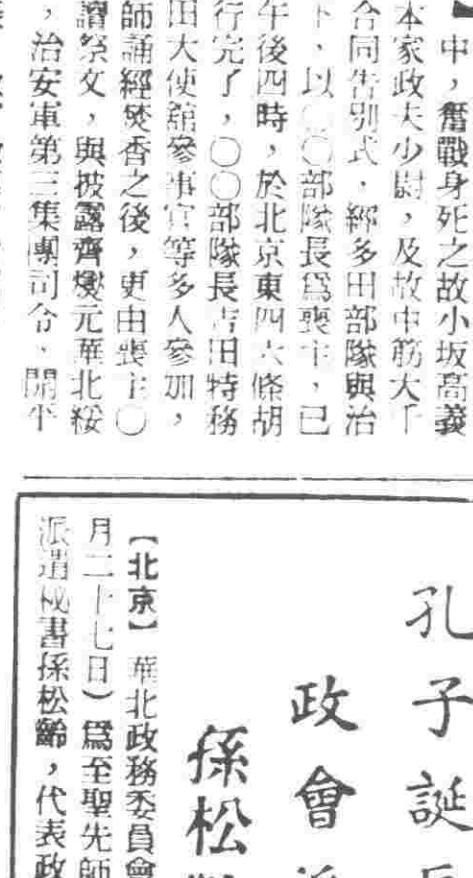 中，奮戰身死之故小坂高義
本家政夫少尉，及故中筋大
合同告別式，經多田部隊與治
下，以〇〇部隊長爲喪主，已
午後四時，於北京東四六條胡
行完了，〇〇部隊長吉田特務
田大使館參事官等多人參加，
師誦經焚香之後，更由喪主〇
讀祭文，與披露齊燮元華北綏
，治安軍第三集團司令，開平
孔子誕
政會
孫松
【北京】華北政務委員會
月二十七日）爲至聖先師
派遣祕書孫松齡，代表政